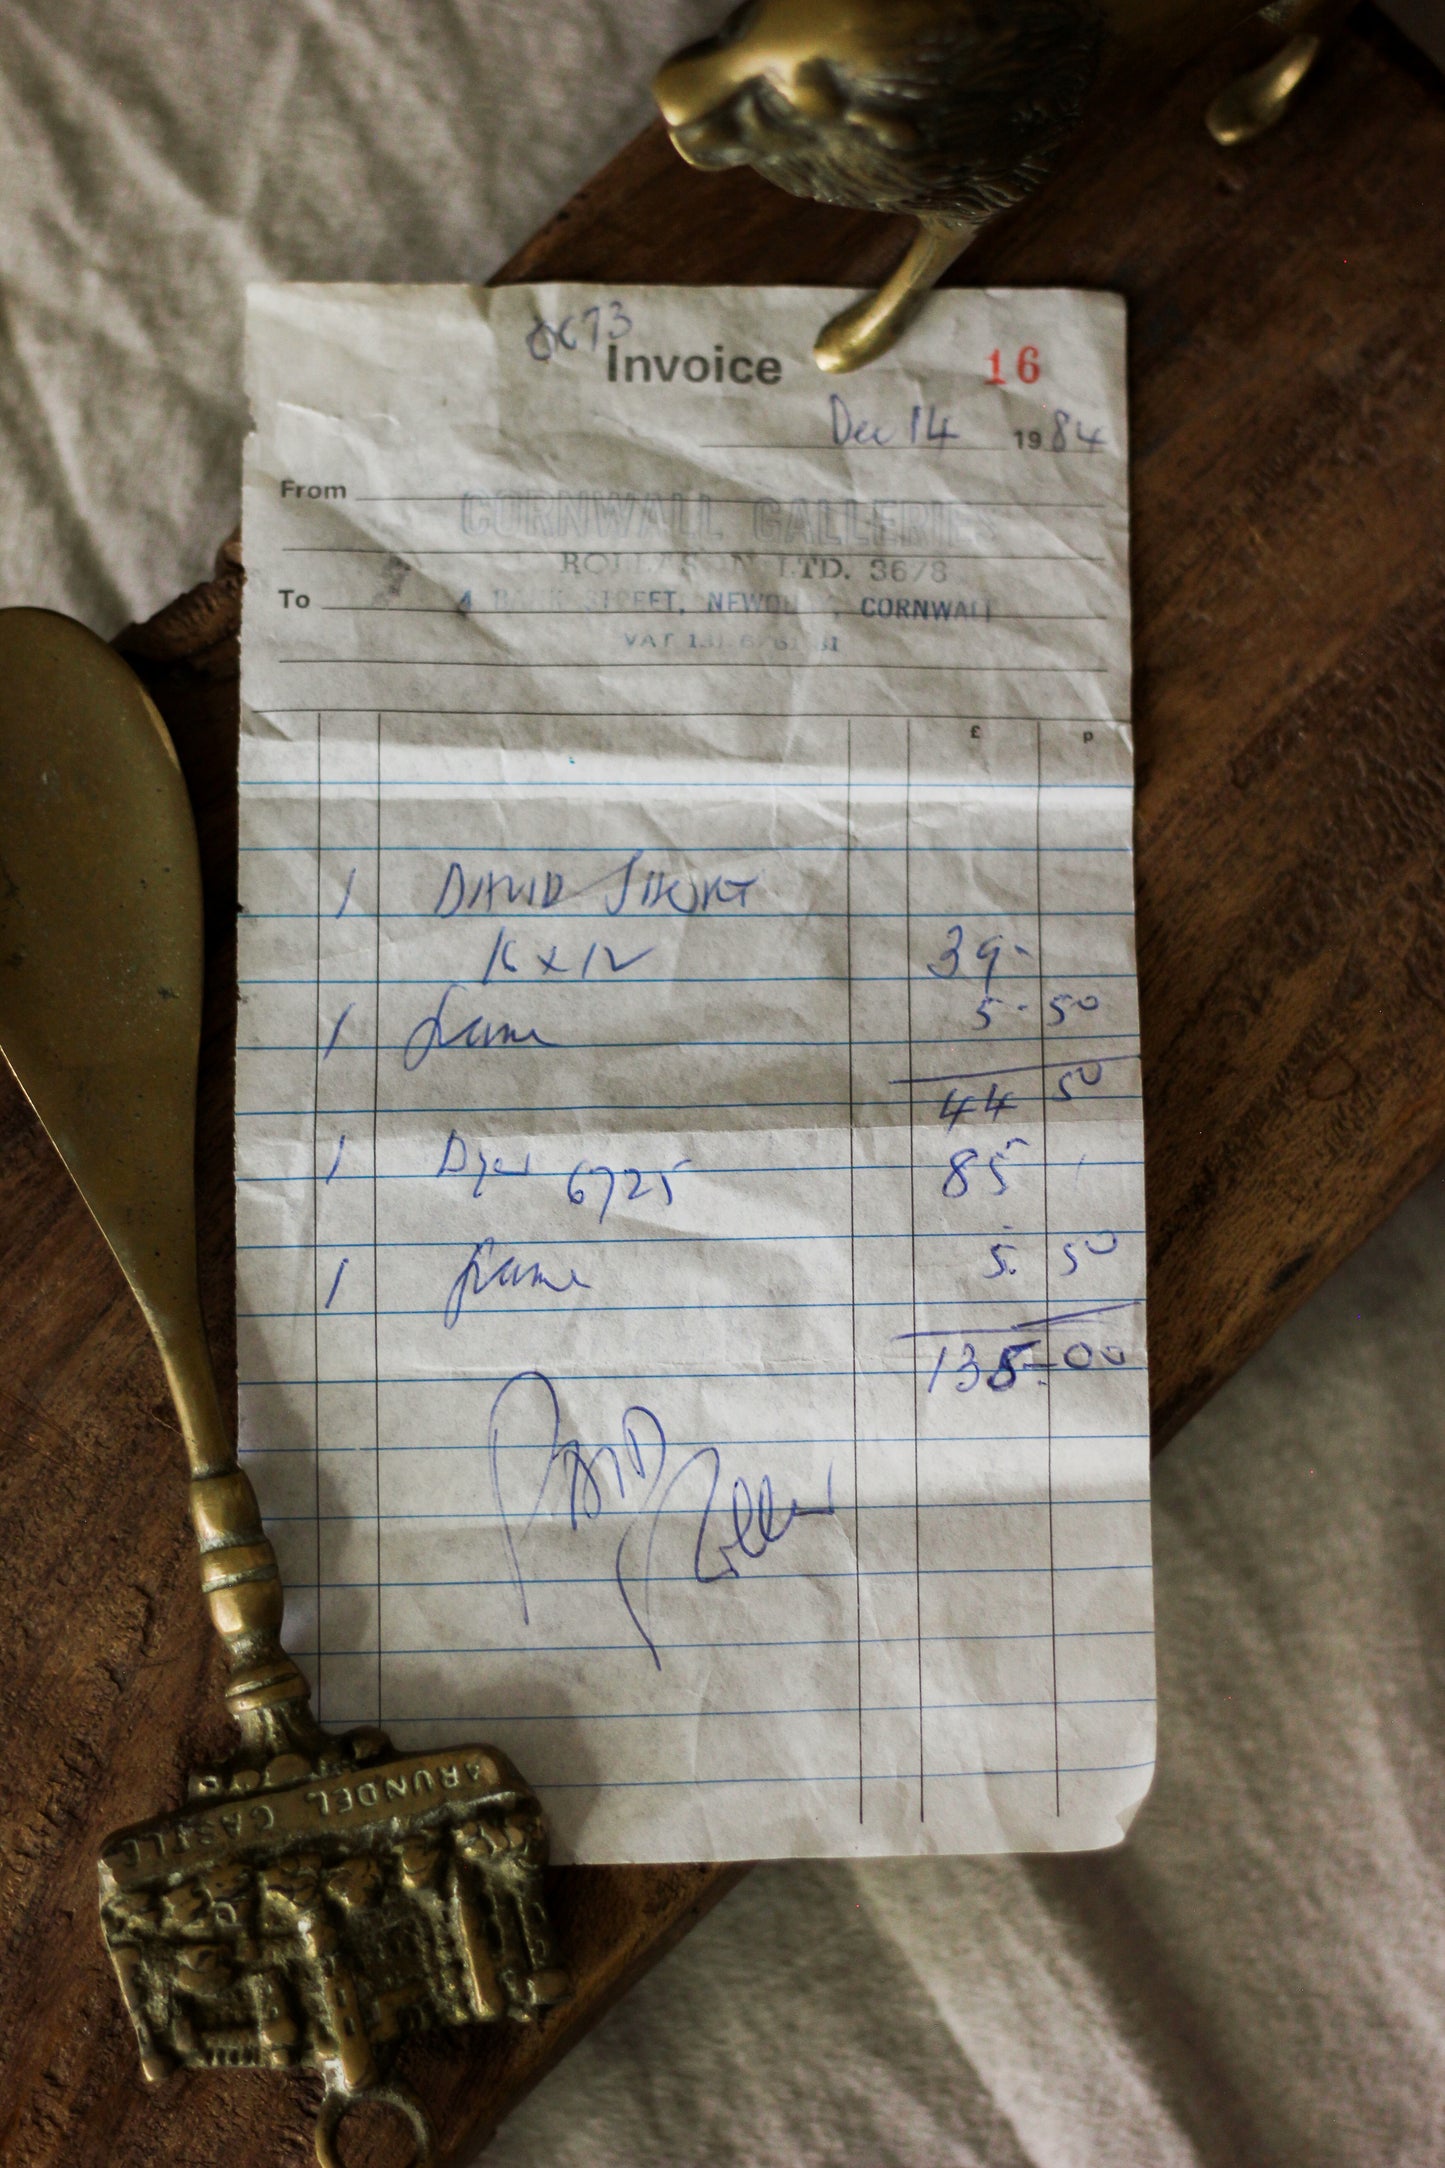 Invoice 16
Dec 14 1984
From
CORNWALL GALLERIES
LTD. 3678
To
4 STREET, CORNWALL
VAT
£ p
1 DAVID SHORT
16 x 12 39-
1 frame 5.50
44 50
1 Dyer 6725 85-
1 frame 5.50
135-00
ARUNDEL CASTLE